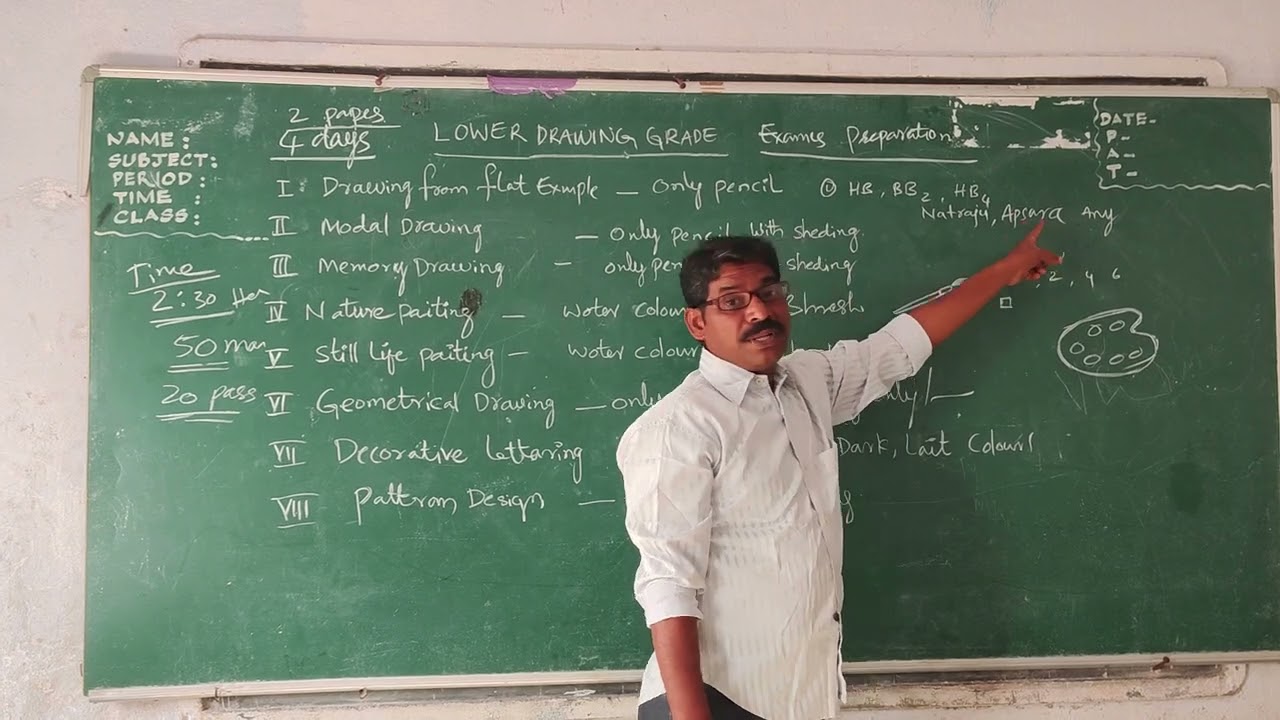 NAME :
SUBJECT:
PERIOD :
TIME :
CLASS:
2 papes
4 days
LOWER DRAWING GRADE Exames Preparation
DATE-
P-
A-
T-
I Drawing from flat Exmple — Only pencil ① HB, BB2, HB4
Natraju, Apsara Any
II Modal Drawing — Only pencil With sheding
III Memory Drawing — only pen sheding
IV Nature paiting — Water colour Brush
V Still life paiting — Water colour
VI Geometrical Drawing — only only
VII Decorative Lettaring Dark, Lait Colour
VIII Pattron Design —
Time
2:30 Her
50 mar
20 pass
, 2, 4 6